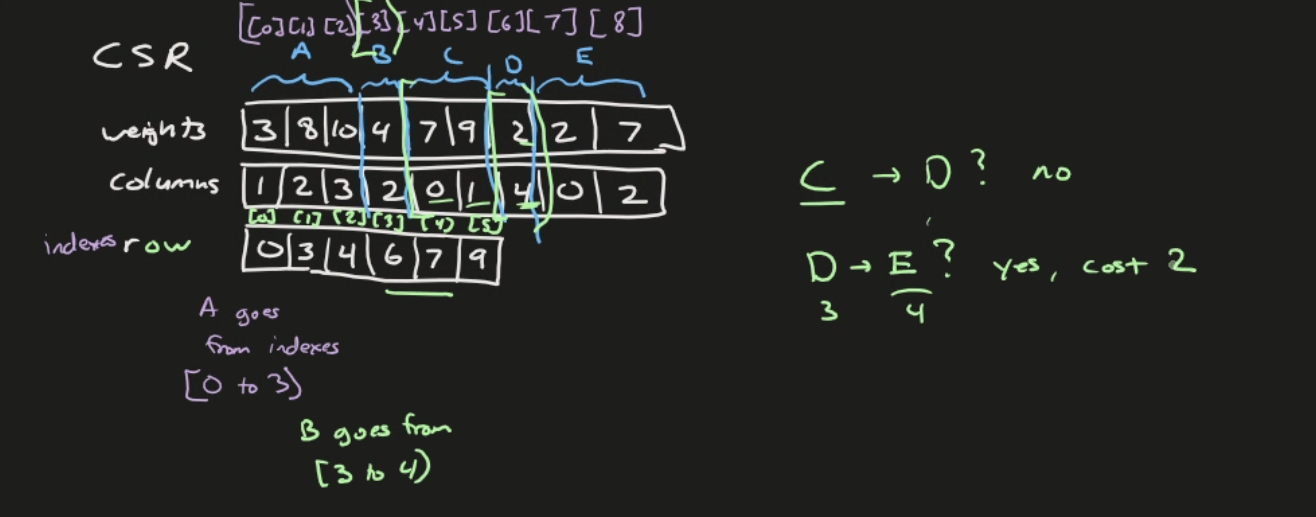 [[0] [1] [2] [3] [4] [5] [6] [7] [8]
CSR A B C D E
weights 3 8 10 4 7 9 2 2 7
columns 1 2 3 2 0 1 4 0 2
[0] [1] [2] [3] [4] [5]
indexes row 0 3 4 6 7 9
A goes
from indexes
[0 to 3)
B goes from
[3 to 4)
C → D? no
D → E? yes, cost 2
3 4